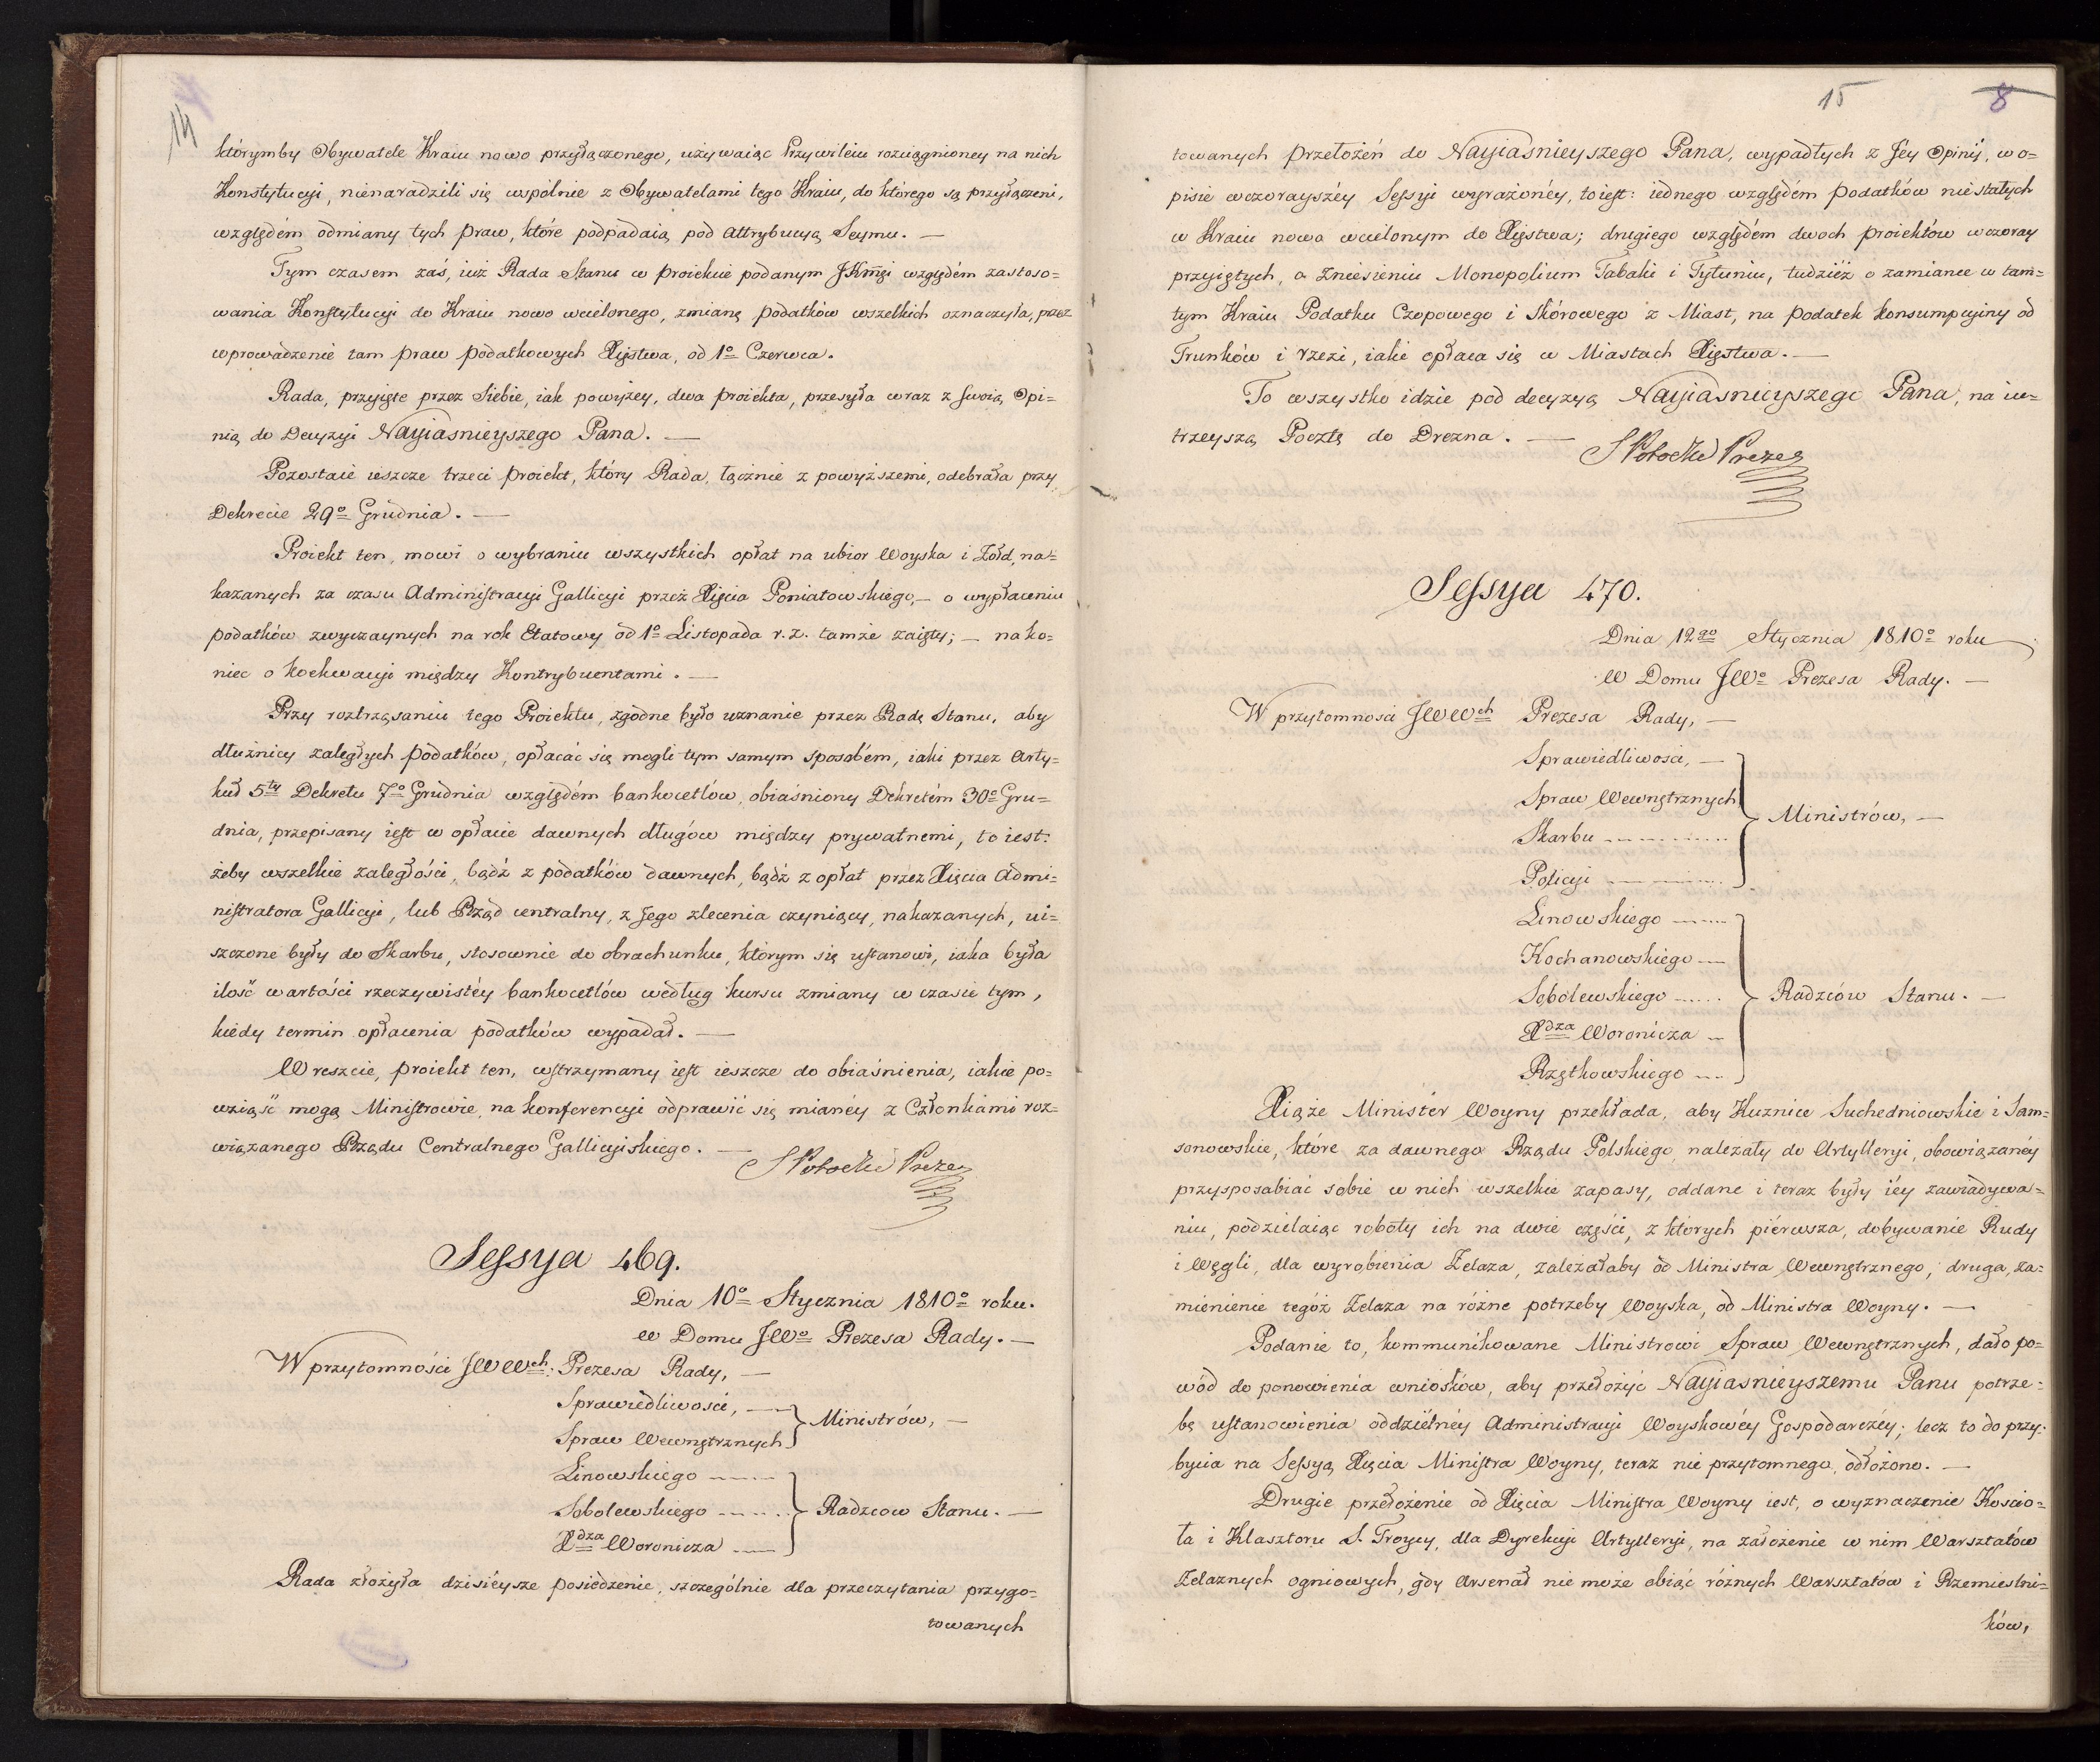 14
którymby Obywatele Kraiu nowo przyłączonego, używaiąc Przywileiu rozciągnioney na nich
Konstytucyi, nienaradzili się wspólnie z Obywatelami tego Kraiu, do którego są przyłączeni,
względém odmiany tych praw, które podpadaią pod attrybucyą Seymu. —
Tym czasem zaś, iuż Rada Stanu w proiekcie podanym JKmci względém zastoso=
wania Konstytucyi do Kraiu nowo wcielonego, zmianę podatków wszelkich oznaczyła, przez
wprowadzenie tam praw podatkowych Xięstwa, od 1o Czerwca.
Rada, przyięte przez Siebie, iak powyżey, dwa proiekta, przesyła wraz z Swoią Opi=
nią do Decyzyi Nayiaśnieyszego Pana. —
Pozostaie ieszcze trzeci proiekt, który Rada, łącznie z powyższemi, odebrała przy
Dekrecie 29o Grudnia. —
Proiekt ten, mowi o wybraniu wszystkich opłat na ubior Woyska i Żołd, na=
kazanych za czasu Administracyi Gallicyi przez Xięcia Poniatowskiego, — o wypłaceniu
podatków zwyczaynych na rok Etatowy od 1o Listopada r. z. tamże zaięty; — nako=
niec o koekwacyi między Kontrybuentami. —
Przy roztrząsaniu tego Proiektu, zgodne było uznanie przez Radę Stanu, aby
dłużnicy zaległych podatków, opłacać się mogli tym samym sposobém, iaki przez Arty=
kuł 5ty Dekretu 7o Grudnia względém bankocetlów, obiaśniony Dekretém 30o Gru=
dnia, przepisany iest w opłacie dawnych długów między prywatnemi, to iest:
żeby wszelkie zaległości, bądź z podatków dawnych, bądź z opłat przez Xięcia Admi=
nistratora Gallicyi, lub Rząd centralny, z Jego zlecenia czyniący, nakazanych, ui=
szczone były do Skarbu, stosownie do obrachunku, którym się ustanowi, iaka była
ilość wartości rzeczywistéy bankocetlów według kursu zmiany w czasie tym,
kiedy termin opłacenia podatków wypadał. —
Wreszcie, proiekt ten, wstrzymany iest ieszcze do obiaśnienia, iakie po=
wziąść mogą Ministrowie, na konferencyi odprawić się mianéy z Członkami roz=
wiązanego Rządu Centralnego Gallicyiskiego. —
SPotocki Prezes
Sessya 469.
Dnia 10o Stycznia 1810o roku.
w Domu JWo Prezesa Rady. —
W przytomności JWWch: Prezesa Rady, —
Sprawiedliwości, —
Spraw Wewnętrznych
Ministrów, —
Linowskiego
Sobolewskiego
Xdza Woronicza
Radzcow Stanu. —
Rada złożyła dzisiéysze posiedzenie, szczególnie dla przeczytania przygo=
towanych
15 8
towanych przełożeń do Nayiaśnieyszego Pana, wypadłych z Jéy Opinij, w o=
pisie wczorayszéy Sessyi wyrażonéy, to iest: iednego względém podatków niestałych
w Kraiu nowo wcielonym do Xięstwa; drugiego względém dwoch proiektów wczoray
przyiętych, o zniesieniu Monopolium Tabaki i Tytuniu, tudzież o zamianee w tam=
tym Kraiu Podatku Czopowego i Skórowego z Miast, na podatek konsumpcyiny od
Trunków i rzezi, iaki opłaca się w Miastach Xięstwa. —
To wszystko idzie pod decyzyą Nayiaśnieyszego Pana, na iu=
trzeyszą Pocztę do Drezna. —
SPotocki Prezes
Sessya 470.
Dnia 12go Stycznia 1810o roku
W Domu JWo Prezesa Rady. —
W przytomności JWWch Prezesa Rady, —
Sprawiedliwości, —
Spraw Wewnętrznych
Skarbu
Policyi
Ministrów, —
Linowskiego
Kochanowskiego
Sobolewskiego
Xdza Woronicza
Rzętkowskiego
Radzców Stanu. —
Xiąże Minister Woyny przekłada, aby Kuznice Suchedniowskie i Sam=
sonowskie, które za dawnego Rządu Polskiego, należały do Artylleryi, obowiązanéy
przysposabiać sobie w nich wszelkie zapasy, oddane i teraz były iéy zawiadywa=
niu, podzielaiąc roboty ich na dwie części, z których piérwsza, dobywanie Rudy
i Węgli, dla wyrobienia Żelaza, zależałaby od Ministra Wewnętrznego; druga, za=
mienienie tegóż Żelaza na różne potrzeby Woyska, od Ministra Woyny. —
Podanie to, kommunikowane Ministrowi Spraw Wewnętrznych, dało po=
wód do ponowienia wniosków, aby przełożyć Nayiaśnieyszemu Panu potrze=
bę ustanowienia oddzielnéy Administracyi Woyskowéy Gospodarczéy; lecz to do przy=
bycia na Sessyą Xięcia Ministra Woyny, teraz nie przytomnego, odłożono. —
Drugie przełożenie od Xięcia Ministra Woyny iest, o wyznaczenie Koscio=
ła i Klasztoru S. Troycy, dla Dyrekcyi Artylleryi, na założenie w nim Warsztatów
Żelaznych ogniowych, gdy Arsenał nie może obiąć różnych Warsztatów i Rzemieślni=
ków,